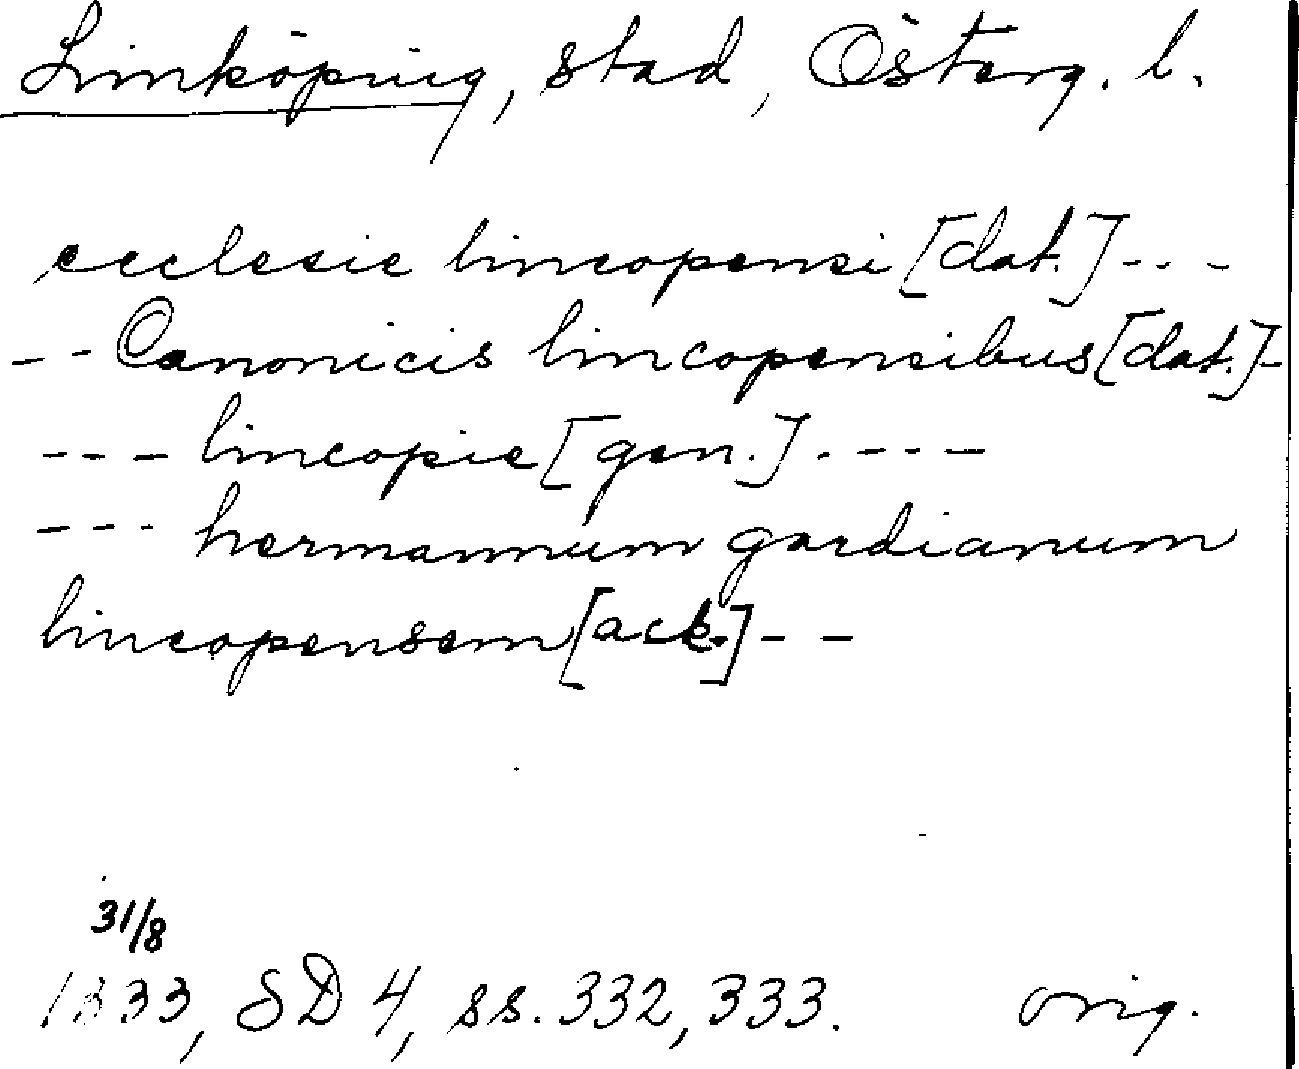 Linköping, stad, Österg. l.
ecclesie lincopensi [dat.] - - -
- - Canonicis lincopensibus [dat.] -
- - - lincopie [gen.] - - - -
- - - hermannum gardianum
lincopensem [ack.] - - 
31/8
1333, SD 4, ss. 332, 333. orig.